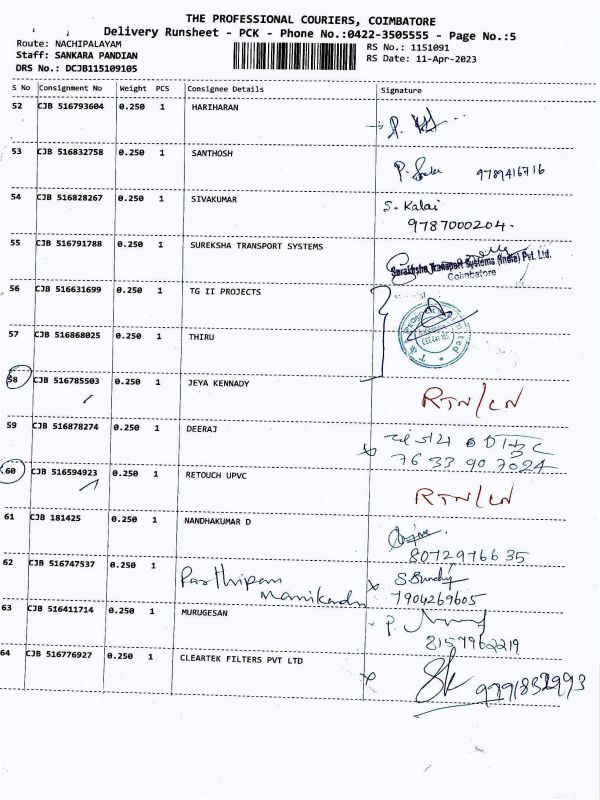 THE PROFESSIONAL COURIERS, COIMBATORE
Delivery Runsheet - PCK - Phone No.:0422-3505555 - Page No.:5
Route: NACHIPALAYAM RS No.: 1151091
Staff: SANKARA PANDIAN RS Date: 11-Apr-2023
DRS No.: DCJB115109105
S No Consignment No Weight PCS Consignee Details Signature
52 CJB 516793604 0.250 1 HARIHARAN
53 CJB 516832758 0.250 1 SANTHOSH 9789416716
54 CJB 516828267 0.250 1 SIVAKUMAR S. Kalai
9787000204.
55 CJB 516791788 0.250 1 SUREKSHA TRANSPORT SYSTEMS
Surakhsha Transport Systems (India) Pvt. Ltd.
Coimbatore
56 CJB 516631699 0.250 1 TG II PROJECTS
57 CJB 516868025 0.250 1 THIRU
58 CJB 516785503 0.250 1 JEYA KENNADY RTN/LN
59 CJB 516878274 0.250 1 DEERAJ
76 33 90 7024
60 CJB 516594923 0.250 1 RETOUCH UPVC RTN/LN
61 CJB 181425 0.250 1 NANDHAKUMAR D
8072976635
62 CJB 516747537 0.250 1 Parthipan
7904269605
63 CJB 516411714 0.250 1 MURUGESAN
8157962219
64 CJB 516776927 0.250 1 CLEARTEK FILTERS PVT LTD
9791832993